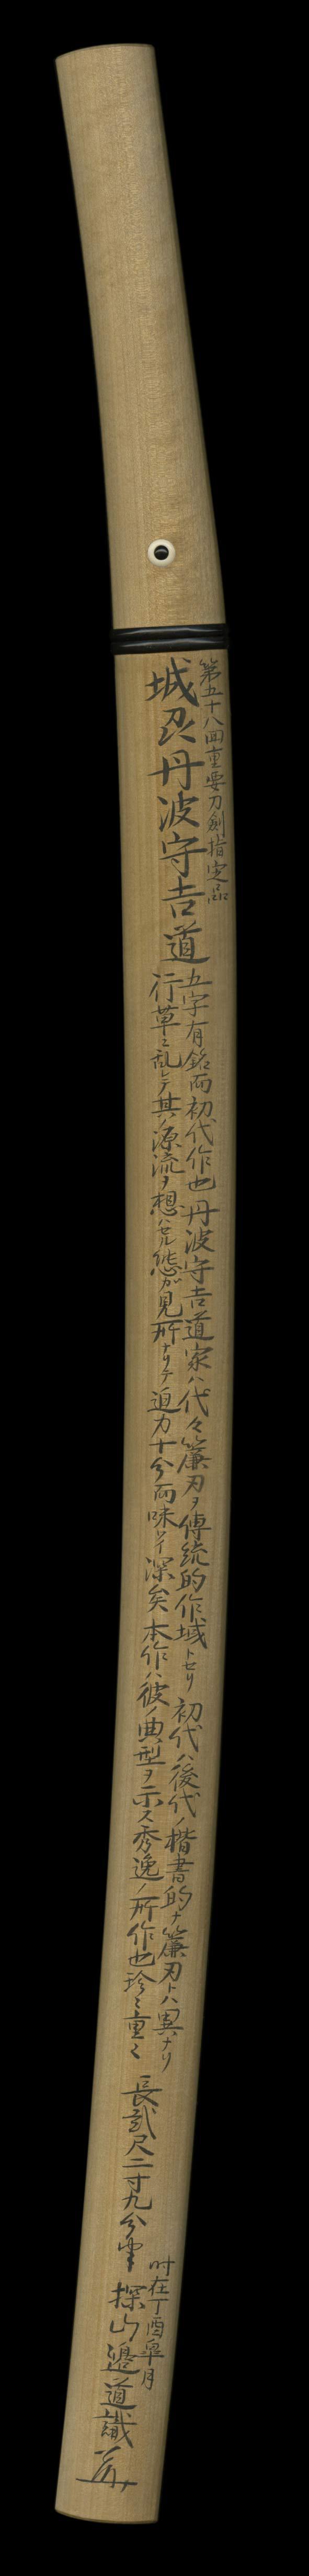 第五十八回重要刀剣指定品
城州丹波守吉道
五字有銘而初代作也丹波守吉道家ハ代々簾刃ヲ傳統的作域トセリ初代ハ後代ノ楷書的ナ簾刃トハ異ナリ
行草ニ乱レテ其ノ源流ヲ想ハセル態ガ見所ナリテ迫力十分而味ワイ深矣本作ハ彼ノ典型ヲ示ス秀逸ノ所作也珍々重々
長弐尺二寸九分半
时在丁酉皐月
探山邉道識